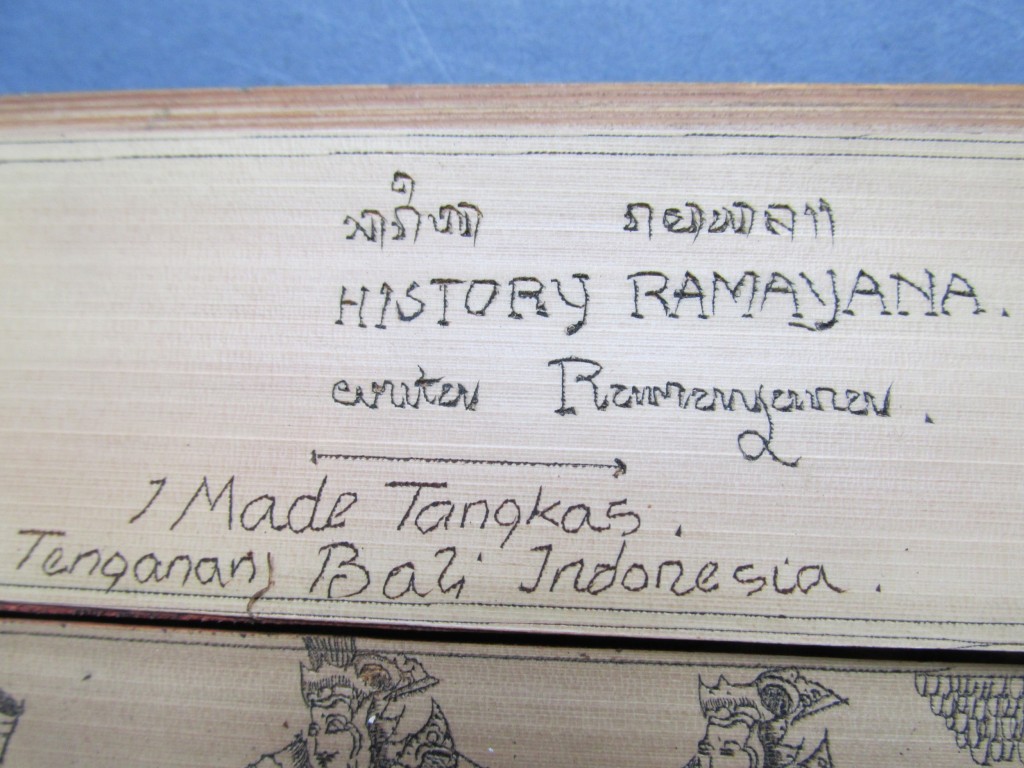 HISTORY RAMAYANA.
cerita Ramayana.
I Made Tangkas.
Tenganan Bali Indonesia.